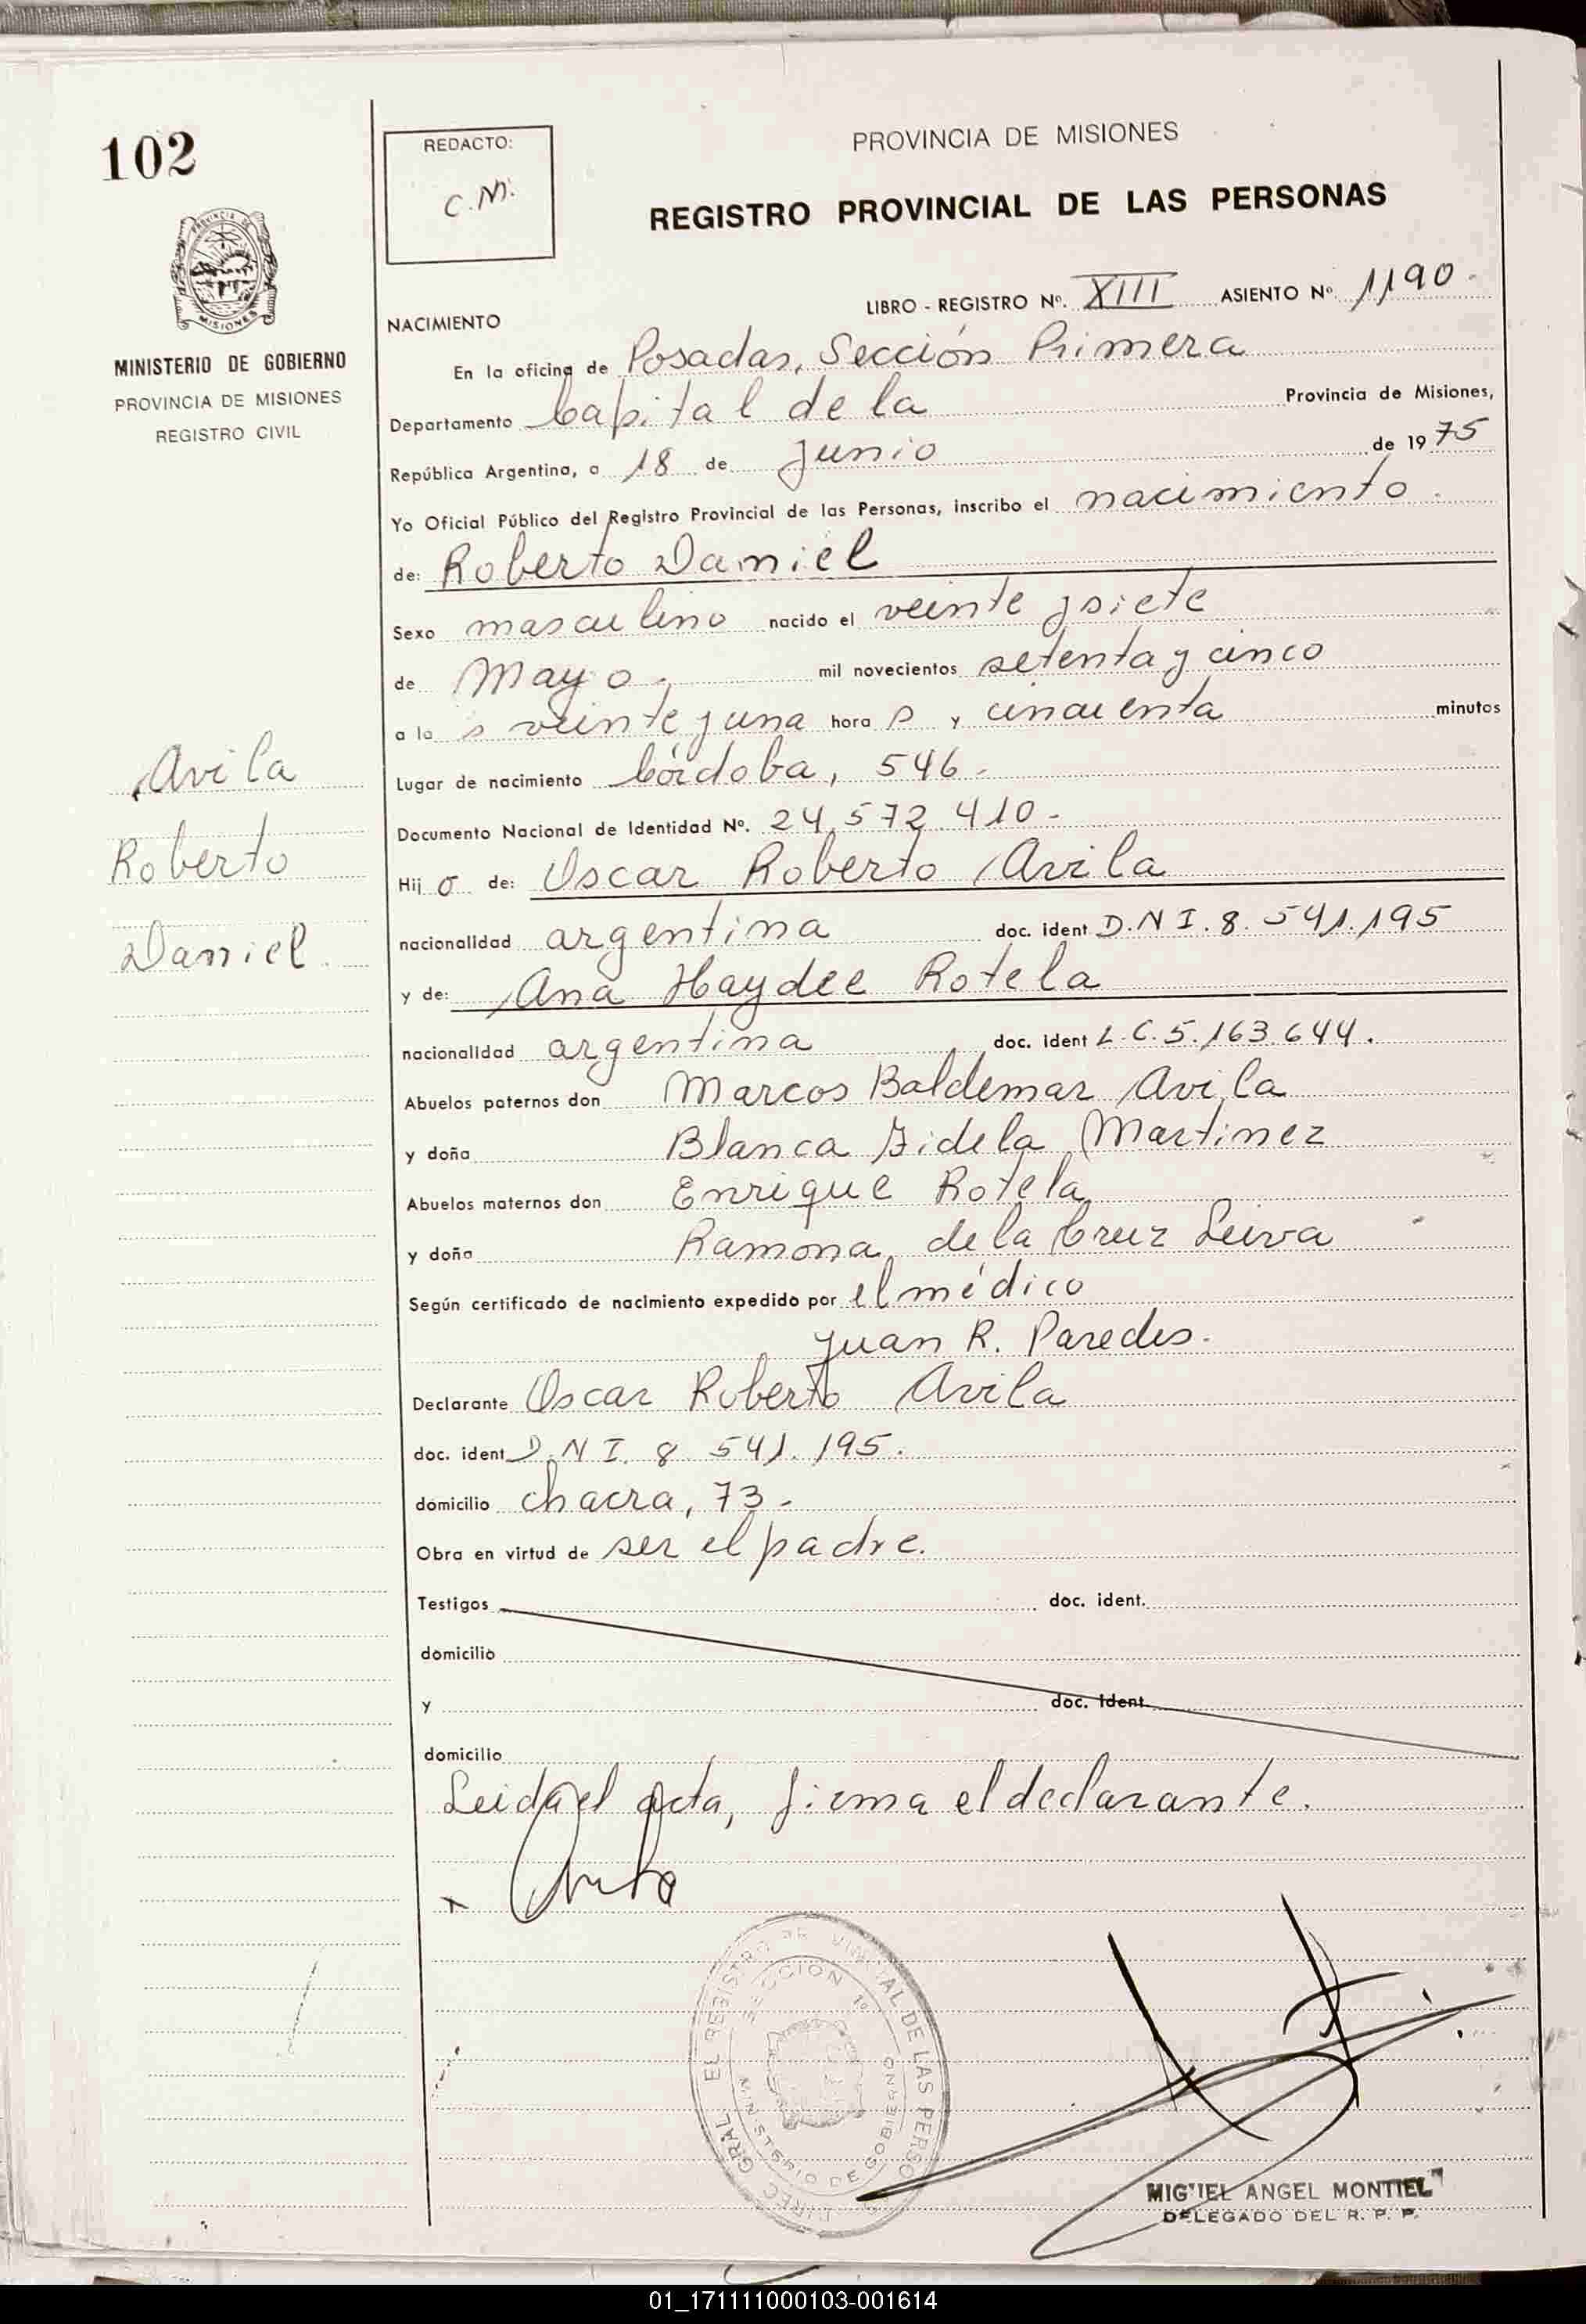 102
REDACTO:
C.M.
PROVINCIA DE MISIONES
REGISTRO PROVINCIAL DE LAS PERSONAS
MISIONES
MINISTERIO DE GOBIERNO
PROVINCIA DE MISIONES
REGISTRO CIVIL
LIBRO - REGISTRO Nº. XIII ASIENTO Nº. 1190.
NACIMIENTO
En la oficina de Posadas, Sección Primera
Departamento Capital de la Provincia de Misiones,
República Argentina, a 18 de Junio de 1975
Yo Oficial Público del Registro Provincial de las Personas, inscribo el nacimiento.
de: Roberto Daniel
Sexo masculino nacido el veinte y siete
de Mayo. mil novecientos setenta y cinco
a la s veinte y una hora s y cincuenta minutos
Lugar de nacimiento Córdoba, 546.
Documento Nacional de Identidad Nº. 24.572.410.
Hij o de: Oscar Roberto Avila
nacionalidad argentina doc. ident D.N I. 8. 541.195
y de: Ana Haydee Rotela
nacionalidad argentina doc. ident L.C.5.163.644.
Abuelos paternos don Marcos Baldemar Avila
y doña Blanca Fidela Martinez
Abuelos maternos don Enrique Rotela
y doña Ramona de la Cruz Leiva
Según certificado de nacimiento expedido por el médico
Juan R. Paredes.
Declarante Oscar Roberto Avila
doc. ident D.N I. 8. 541.195.
domicilio chacra, 73.
Obra en virtud de ser el padre.
Testigos doc. ident.
domicilio
y doc. ident.
domicilio
Leida el acta, firma el declarante.
Avila
Roberto
Daniel.
SECCION 1º
MINISTERIO DE GOBIERNO
MIGUEL ANGEL MONTIEL
DELEGADO DEL R. P. P.
01_171111000103-001614